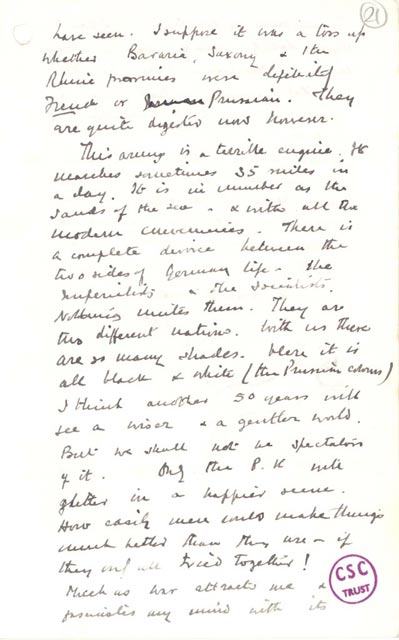 21
have seen. I suppose it was a toss up
whether Bavaria, Saxony & the
Rhine provinces were definitely
French or Prussian. They
are quite digested now however.
This army is a terrible engine. It
marches sometimes 35 miles in
a day. It is in number as the
sands of the sea - & with all the
modern conveniences. There is
a complete divorce between the
two sides of German life - the
Imperialists & the Socialists.
Nothing unites them. They are
two different nations. With us there
are so many shades. Here it is
all black & white (the Prussian colours)
I think another 50 years will
see a wiser & a gentler world.
But we shall not be spectators
of it. Only the P.K will
glitter in a happier scene.
How easily men could make things
much better than they are - if
they only all tried together!
Much as war attracts me &
fascinates my mind with its
CSC
TRUST